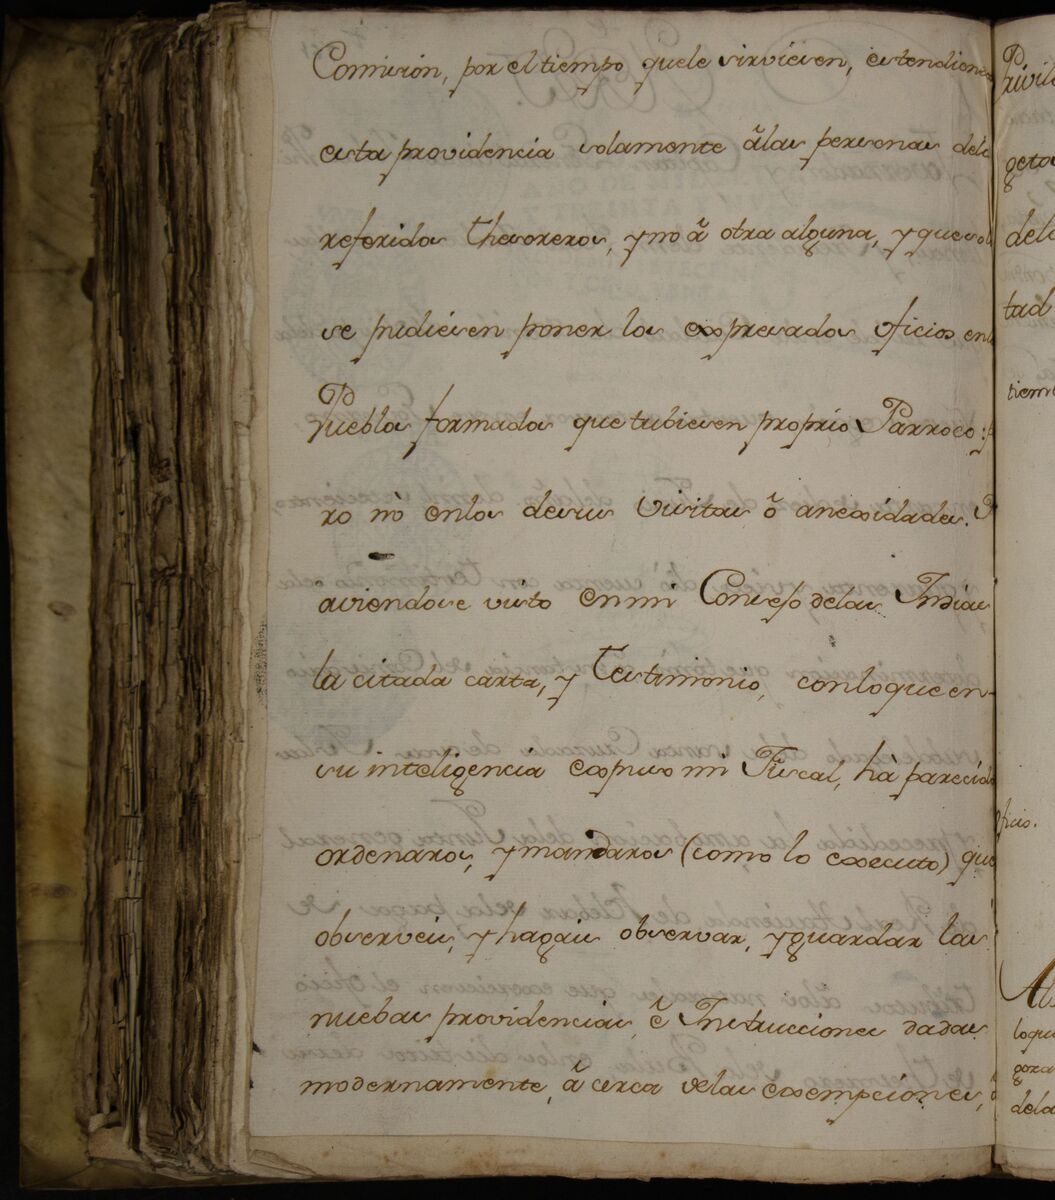 Comission, por el tiempo que le sirviesen, estendiendo
esta providencia solamente â las personas delos
referidos thesoreros, y no â otra alguna, y que solo
se pudiesen poner los expresados oficios en los
Pueblos formados que tubiesen proprio Parroco: pe
ro nò en los de sus Visitas ô anexidades. Y
aviendose visto en mi Consejo de las Indias
la citada carta, y Testimonio, con lo que en
su inteligencia expuso mi Fiscal, há parecido
ordenaros, y mandaros (como lo executo) que
observeis, y hagais observar, y guardar las
nuebas providencias, ê Instrucciones dadas
modernamente, â cerca de las exempciones,
Privile
getos
dela
tad
tiem
ficio.
loque
goza
dela